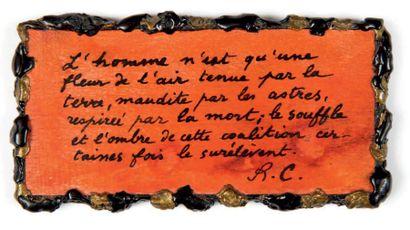 L'homme n'est qu'une
fleur de l'air tenue par la
terre, maudite par les astres,
respirée par la mort; le souffle
et l'ombre de cette coalition cer-
taines fois le surélèvent.
R.C.